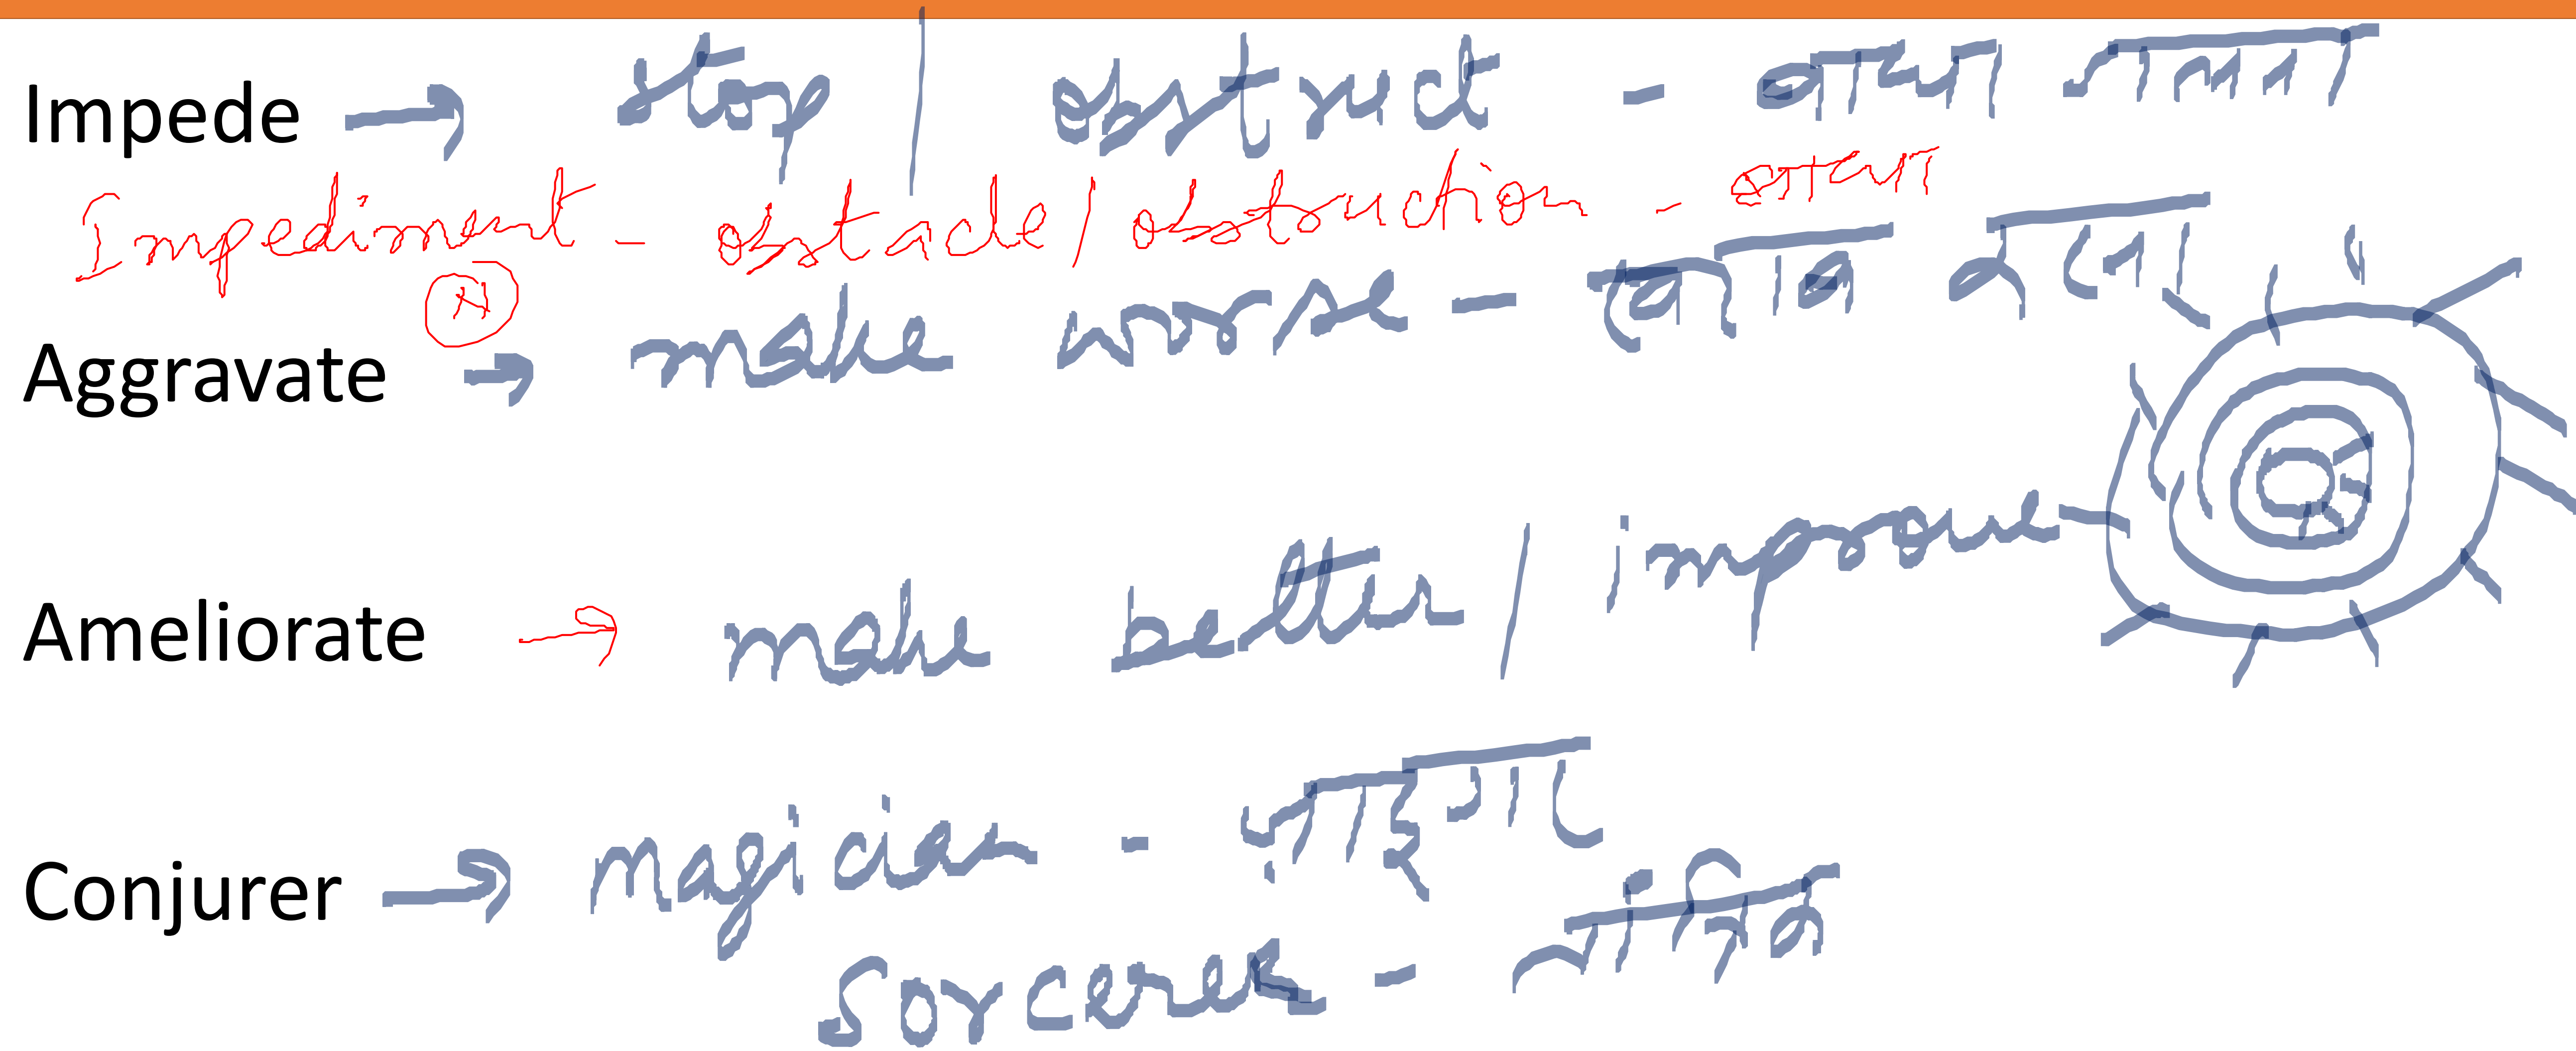 Impede → stop / obstruct - बाधा
Impediment - obstacle / obstruction - बाधा
(N)
Aggravate → make worse - खराब
Ameliorate → make better / improve -
Conjurer → magician - जादूगर
Sorcerer - तांत्रिक